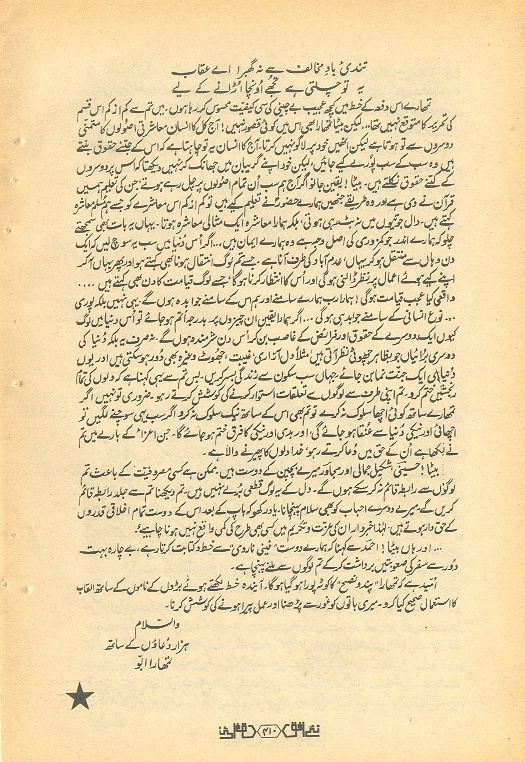 تندیٔ بادِ مخالف سے نہ گھبرا اے عقاب
یہ تو چلتی ہے تجھے اُونچا اُڑانے کے لیے
تمہارے اس دفعہ کے خط میں کچھ عجیب بے چینی کی سی کیفیت محسوس کر رہا ہوں، میں تم سے کم از کم اس قسم
کی تحریر کا متوقع نہیں تھا، لیکن بیٹا تمہارا بھی اس میں کوئی قصور نہیں! آج کل کا انسان معاشرتی اصولوں کا متمنی
دوسروں سے تو ہوتا ہے لیکن انھیں خود پر لاگو نہیں کرتا۔ آج کا انسان یہ تو چاہتا ہے کہ اس کے جتنے حقوق بنتے
ہیں وہ سب کے سب پورے کیے جائیں، لیکن خود اپنے گریبان میں جھانک کر نہیں دیکھتا کہ اس پر دوسروں
کے کتنے حقوق نکلتے ہیں۔ بیٹا! یقین جانو اگر آج ہم سب اُن تمام اصولوں پر چل رہے ہوتے جن کی تعلیم ہمیں
قرآن نے دی ہے اور وہ طریقے جنھیں ہمارے حضورؐ نے تعلیم کیے ہیں، تو کم از کم اس معاشرے کو جسے ہم مسلم معاشرہ
کہتے ہیں۔ دال جوتیوں میں نہ بٹ رہی ہوتی، بلکہ ہمارا معاشرہ ایک مثالی معاشرہ ہوتا۔ یہاں یہ بات بھی سمجھتے
چلو کہ ہمارے اندر جو کمزوری کی اصل وجہ ہے وہ ہمارے ایمان ہیں... اگر اُس دنیا میں سب یہ سوچ لیں کہ ایک
دن وہاں سے منتقل ہو کر یہاں عدم آباد کی طرف آنا ہے، جسے تم لوگ انتقال ہونا بھی کہتے ہو اور پھر یہاں آکر
اپنے کیے ہوئے اعمال پر نظر ڈالنی ہوگی اور اُس کا انتظار کرنا ہوگا جسے لوگ قیامت کا دن بھی کہتے ہیں ....
واقعی کیا عجب قیامت ہوگی! ہمارا رب ہمارے سامنے اور ہم اس کے سامنے جوابدہ ہوں گے۔ یہی نہیں بلکہ پوری
... نوعِ انسانی کے سامنے جوابدہی ہوگی ... اگر ہمارا یقین ان چیزوں پر بدرجہ اتم ہو جائے تو اُس دنیا میں لوگ
کیوں ایک دوسرے کے حقوق اور فرائض کے غاصب بن کر اس دن شرمندہ ہوں گے۔ نہ صرف یہ بلکہ دُنیا کی
دوسری برائیاں جو بظاہر چھوٹی نظر آتی ہیں مثلاً دل آزاری، غیبت، جھوٹ وغیرہ بھی دُور ہو سکتی ہیں اور یوں
دُنیا ہی ایک جنت نما بن جائے جہاں سب سکون سے زندگی بسر کریں۔ بس تم سے یہی کہنا ہے کہ دلوں کی تمام
رنجشیں ختم کر دو، تم اپنی طرف سے لوگوں سے تعلقات استوار کرنے کی کوشش کرتے رہو۔ ضروری تو نہیں اگر
تمہارے ساتھ کوئی اچھا سلوک نہ کرے تو تم بھی اس کے ساتھ نیک سلوک نہ کرو، اگر سب یہی سوچنے لگیں تو
اچھائی اور نیکی دُنیا سے عنقا ہو جائے گی، اور بدی اور نیکی کا فرق ختم ہو جائے گا۔ جن "اعزا" کے بارے میں تم
نے لکھا ہے اُن کے حق میں دُعا کرتے رہو، خدا دلوں کا پھیرنے والا ہے۔
بیٹا! حسینی، شکیل جمالی اور سجاد میرے بچپن کے دوست ہیں، ممکن ہے کسی مصروفیت کے باعث تم
لوگوں سے رابطہ قائم نہ کر سکے ہوں گے۔ دل کے یہ لوگ قطعی بُرے نہیں ہیں، تم دیکھنا تم سے جلد رابطہ قائم
کریں گے، میرے دوسرے احباب کو بھی سلام پہنچانا۔ یاد رکھو کہ باپ کے بعد اس کے دوست تمام اخلاقی قدروں
کے حقدار ہوتے ہیں۔ لہٰذا خبردار ان کی عزت و تکریم میں کسی بھی طرح کی کمی واقع نہیں ہونا چاہیے!
... اور ہاں بیٹا! احمد سے کہنا کہ ہمارے دوست "فینی ناروی" سے خط و کتابت کرتا رہے، بے چارہ بہت
دُور سے سفر کی صعوبتیں برداشت کر کے تم لوگوں سے ملنے پہنچا ہے۔
اُمید ہے کہ تمہارا "پند و نصیح" کا کوٹہ پورا ہو گیا ہوگا۔ آئندہ خط لکھتے ہوئے بڑوں کے ناموں کے ساتھ القاب
کا استعمال صحیح کیا کرو۔ میری باتوں کو غور سے پڑھنا اور عملی پیرا ہونے کی کوشش کرنا۔
والسلام
ہزار دُعاؤں کے ساتھ
تمہارا ابّو
نئے افق ۴۱۰